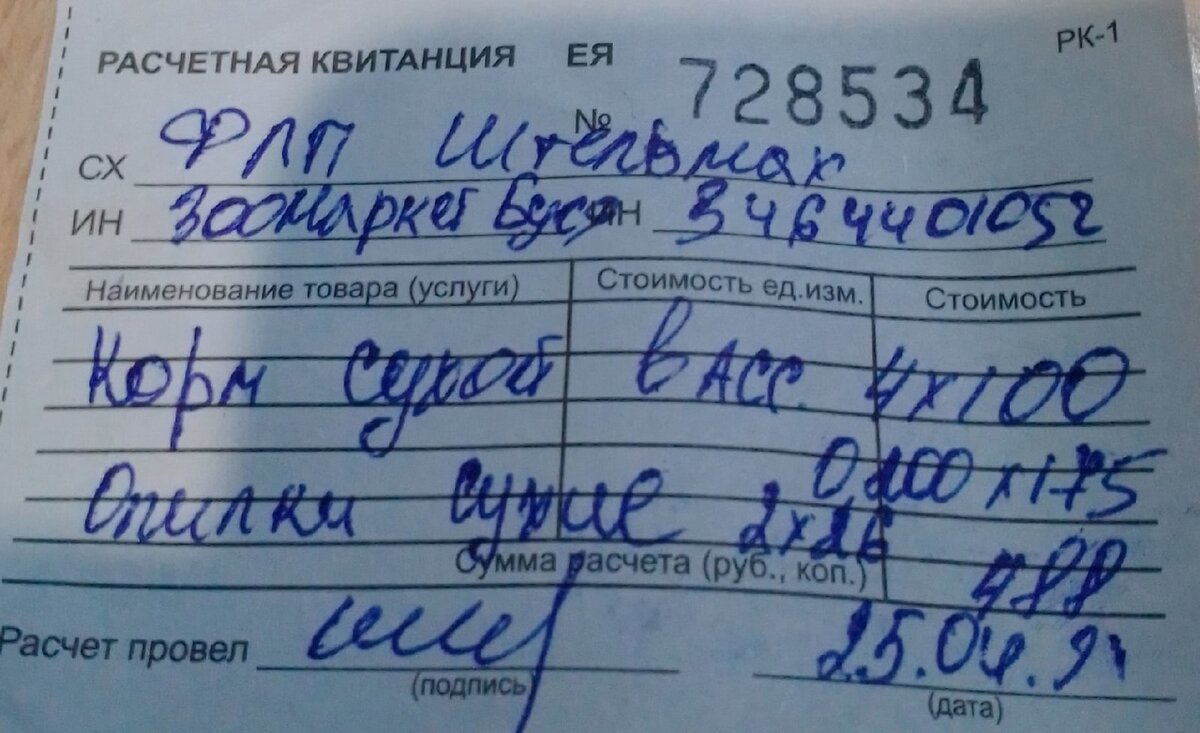 РАСЧЕТНАЯ КВИТАНЦИЯ ЕЯ № 728534 РК-1
СХ ФЛП Штельмах
ИН Зоомаркет Буся ИН 3464401052
Наименование товара (услуги) Стоимость ед.изм. Стоимость
Корм сухой в асс. 4х100
0,200х175
Опилки сухие 2х26
Сумма расчета (руб., коп.) 488
Расчет провел
(подпись) 25.04.
(дата)